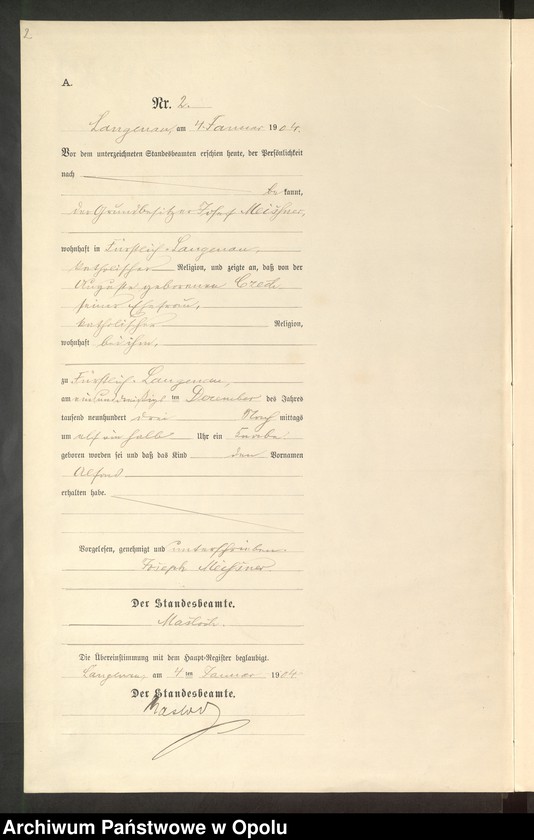 2
A.
Nr. 2.
Langenau, am 4. Januar 1904.
Vor dem unterzeichneten Standesbeamten erschien heute, der Persönlichkeit
nach
be kannt,
der Grundbesitzer Josef Meißner,
wohnhaft in Fürstlich-Langenau,
katholischer Religion, und zeigte an, daß von der
Auguste geborenen Czech
seiner Ehefrau,
katholischer Religion,
wohnhaft bei ihm,
zu Fürstlich-Langenau,
am einunddreißigsten Dezember des Jahres
tausend neunhundert drei Nach mittags
um elf ein halb Uhr ein Knabe
geboren worden sei und daß das Kind den Vornamen
Alfons
erhalten habe.
Vorgelesen, genehmigt und unterschrieben
Joseph Meißner
Der Standesbeamte.
Die Übereinstimmung mit dem Haupt-Register beglaubigt.
Langenau, am 4ten Januar 1904.
Der Standesbeamte.
Archiwum Państwowe w Opolu